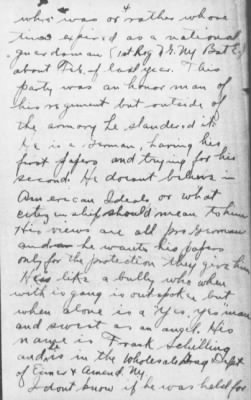 who was or rather whose
time expired as a national
guardsman (1st Reg F.A. NY Bat E)
about Feb. of last year. This
party was an honor man of
his regiment but outside of
the armory he slandered it.
He is a German, having his
first papers and trying for his
second. He doesnt believe in
American Ideals or what
citizenship should mean to him.
His views are all pro German
and he wants his papers
only for the protection they give him
He is like a bully who when
with is gang is outspoken but
when alone is a "Yes, yes" man
and sweet as an angel. His
name is Frank Schilling
and is in the Wholesale Drug Dept
of Eimer & Amend. NY.
I dont know if he was held for